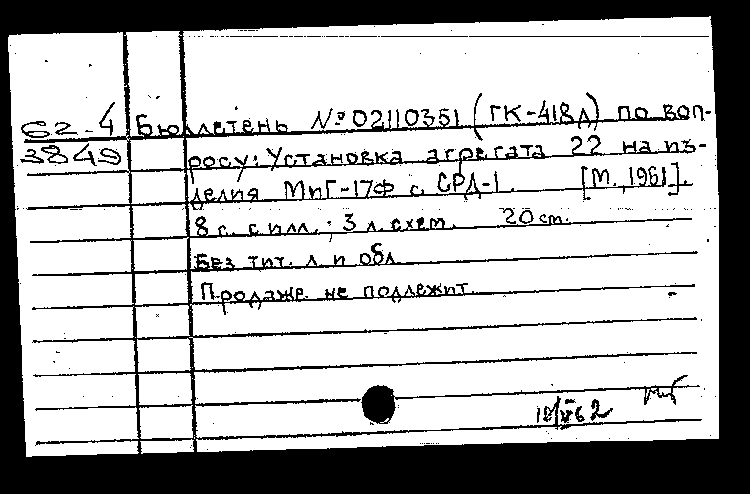 62-4
3849
Бюллетень №02110351 (ГК-418д) по воп-
росу: Установка агрегата 22 на из-
делия МиГ-17Ф с СРД-1. [М., 1961].
8 с. с илл.; 3 л. схем. 20 cm.
Без тит. л. и обл.
Продаже не подлежит.
62